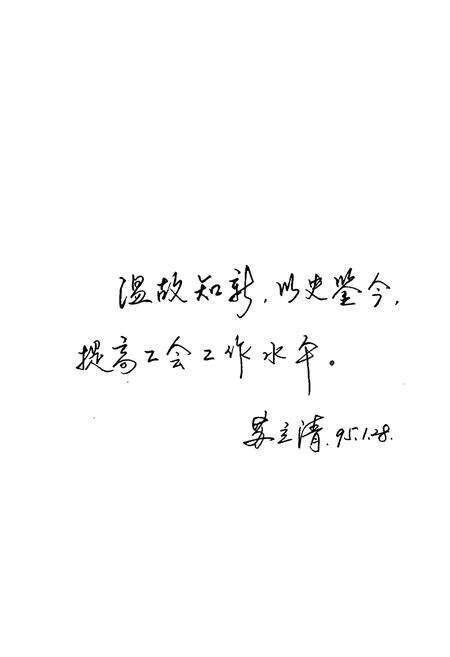 温故知新，以史鉴今，
提高工会工作水平。
苏立清.95.1.28.